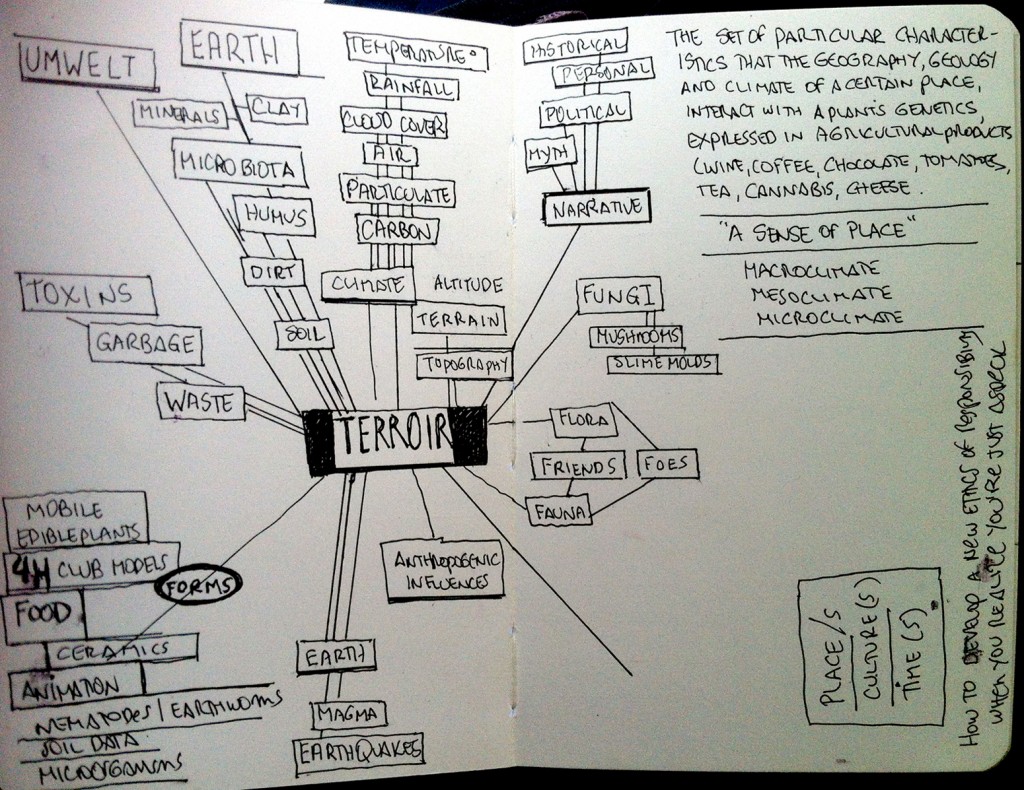 UMWELT
EARTH
MINERALS
CLAY
MICROBIOTA
HUMUS
DIRT
SOIL
TEMPERATURE°
RAINFALL
CLOUD COVER
AIR
PARTICULATE
CARBON
CLIMATE
ALTITUDE
TERRAIN
TOPOGRAPHY
HISTORICAL
PERSONAL
POLITICAL
MYTH
NARRATIVE
FUNGI
MUSHROOMS
SLIME MOLDS
TOXINS
GARBAGE
WASTE
TERROIR
FLORA
FRIENDS
FOES
FAUNA
ANTHROPOGENIC
INFLUENCES
EARTH
MAGMA
EARTHQUAKES
FORMS
MOBILE
EDIBLE PLANTS
4H CLUB MODELS
FOOD
CERAMICS
ANIMATION
NEMATODES / EARTHWORMS
SOIL DATA
MICROORGANISMS
THE SET OF PARTICULAR CHARACTER-
ISTICS THAT THE GEOGRAPHY, GEOLOGY
AND CLIMATE OF A CERTAIN PLACE,
INTERACT WITH A PLANT'S GENETICS,
EXPRESSED IN AGRICULTURAL PRODUCTS
(WINE, COFFEE, CHOCOLATE, TOMATOES,
TEA, CANNABIS, CHEESE.
"A SENSE OF PLACE"
MACROCLIMATE
MESOCLIMATE
MICROCLIMATE
PLACE/S
CULTURE(S)
TIME(S)
HOW TO DEVELOP A NEW ETHICS OF RESPONSIBILITY
WHEN YOU REALIZE YOU'RE JUST A SPECK